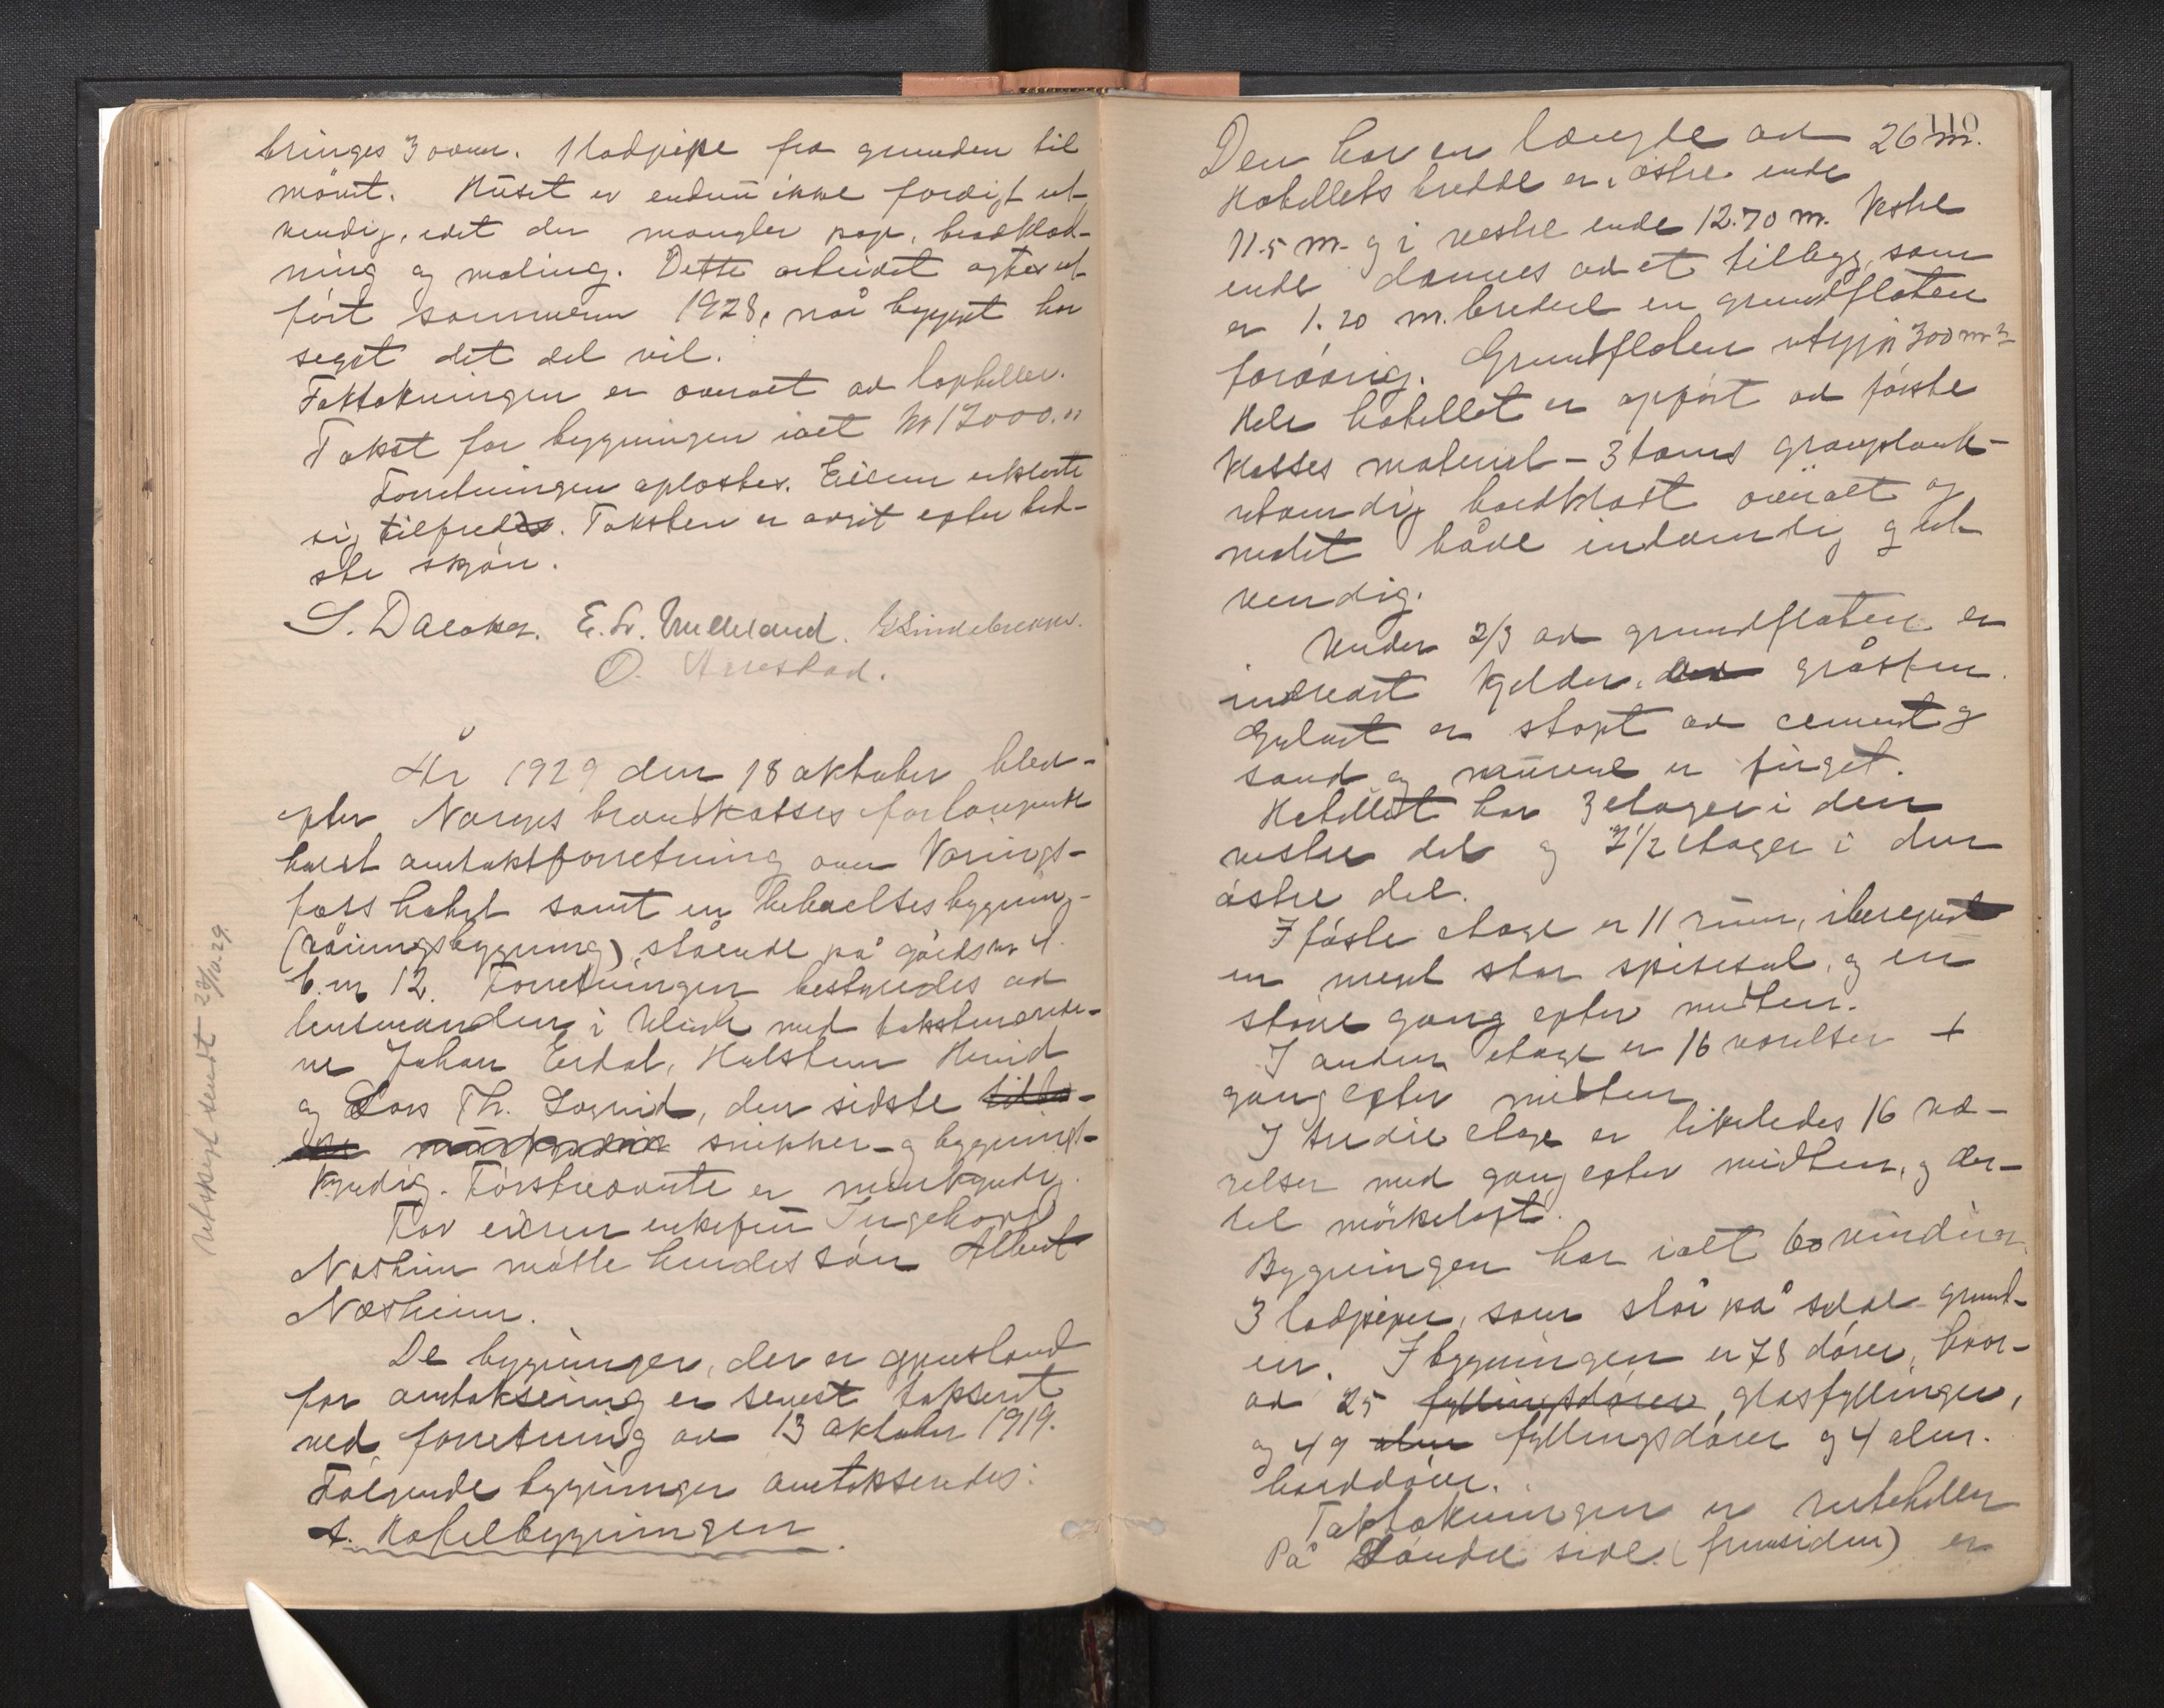 bringes 3 ovner. 1 ladpipe fra grunden til
mønet. Huset er endnu ikke færdigt ut-
vendig, idet der mangler pap, bordklæd-
ning og maling. Dette arbeidet agtes ut-
ført sommeren 1928, når bygget har
seget det del vil.
Taktækningen er overalt av lapheller.
Takst for bygningen ialt kr 17000.
Forretningen oplæstes. Eieren erklærte
sig tilfreds. Taksten er avgit efter bed-
ste skjøn.
O. Aarestad.
År 1929 den 18 oktober blev
efter Norges brandkasses forlangende
holdt omtakstforretning over Vøringsfoss
hotel samt en beboelsesbygning
(våningsbygning) stående på gårdsnr 4
b.nr 12. Forretningen bestyredes av
lensmanden i Ulvik med takstmænde-
ne Johan Erdal, Halsten Hereid
og Lars Th. Legreid, den sidste
snikker- og bygnings-
kyndig. Førstnævnte er murkyndig.
For eieren enkefru Ingeborg
Næsheim møtte hendes søn Albert
Næsheim.
De bygninger, der er gjenstand
for omtaksering er senest taksert
ved forretning av 13 oktober 1919.
Følgende bygninger omtakseredes:
1. Hotelbygningen.
Utskrift sendt 23/10.29.
110
Den har en længde av 26 m.
Hotellets bredde er i østre ende
11.5 m. og i vestre ende 12.70 m. Vestre
ende dannes av et tilbygg, som
er 1.20 m. bredere en grundflaten
forøvrig. Grundflaten utgjør 300 m2
Hele hotellet er opført av første
klasses materiel - 3 toms granplank-
utvendig bordklædt overalt og
malet både indvendig og ut
vendig.
Under 2/3 av grundflaten er
indredt kjelder, av gråsten.
Gulvet er støpt av cement og
sand og murene er fuget.
Hotellet har 3 etager i den
vestre del og 2 1/2 etager i den
østre del.
I første etage er 11 rum, iberegnet
en meget stor spisesal, og en
større gang efter midten.
I anden etage er 16 værelser +
gang efter midten
I tredie etage er likeledes 16 væ-
relser med gang efter midten, og der-
til mørkeloft.
Bygningen har ialt 60 vinduer.
3 ladpiper, som står på selve grund-
en. I bygningen er 78 dører, hvor-
av 25 fyllingsdører glasfyllinger,
og 49 alm fyllingsdører og 4 alm.
borddører.
Taktækningen er ruteheller
På søndre side (fremsiden) er